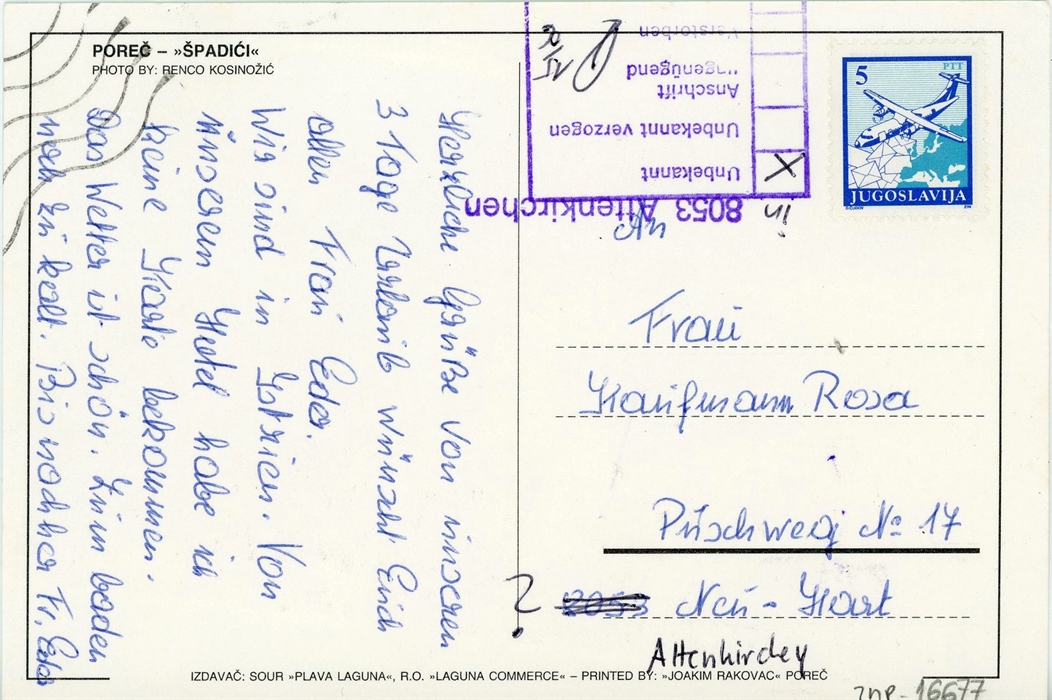 POREČ – »ŠPADIĆI«
PHOTO BY: RENCO KOSINOŽIĆ
Herzliche Grüße von unseren
3 Tage Urlaub wünscht Euch
allen Frau Eder.
Wir sind in Istrien. Von
unserem Hotel habe ich
keine Karte bekommen.
Das Wetter ist schön. Zum baden
noch zu kalt. Bis nachher Fr. Eder
Verstorben
Anschrift
ungenügend
Unbekannt verzogen
Unbekannt
X
8053 Attenkirchen
5
PTT
JUGOSLAVIJA
An
Frau
Kaufmann Rosa
Püschweg No 17
? 8053 Neu-Hart
Attenkirchen
IZDAVAČ: SOUR »PLAVA LAGUNA«, R.O. »LAGUNA COMMERCE« – PRINTED BY: »JOAKIM RAKOVAC« POREČ
ZMP-16677